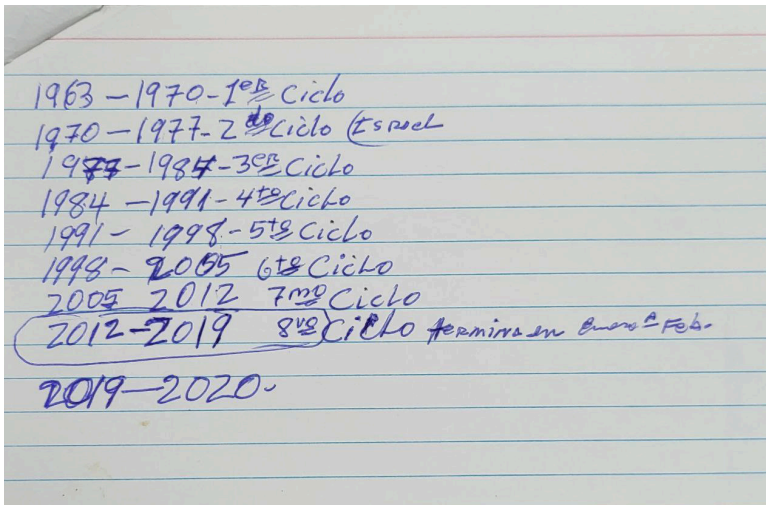 1963 – 1970 - 1er Ciclo
1970 – 1977 - 2do Ciclo (Israel
1977 - 1984 - 3er Ciclo
1984 – 1991 - 4to Ciclo
1991 – 1998 - 5to Ciclo
1998 - 2005 6to Ciclo
2005 2012 7mo Ciclo
2012 - 2019 8vo Ciclo termina en Enero a Feb.
2019 – 2020.